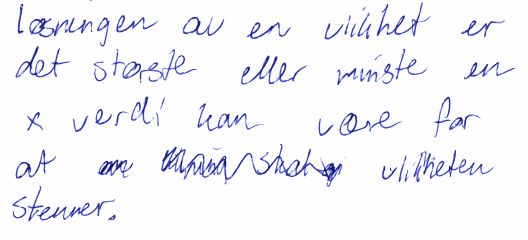 løsningen av en ulikhet er
det største eller minste en
x verdi kan være for
at ulikheten
stemmer.